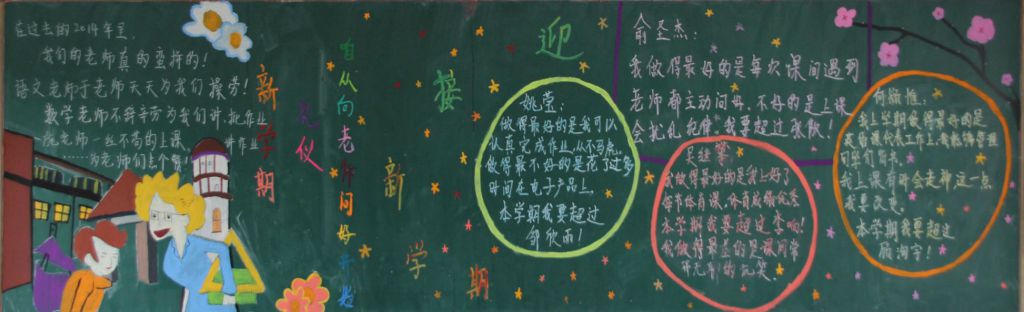 在过去的2014年里,
我们的老师真的蛮拼的!
语文老师于老师天天为我们操劳!
数学老师不辞辛劳为我们讲、批作业
老师一丝不苟的上课
讲作业
为老师们点个
新学期
礼仪
自从向老师问好开始
迎
接
新
学
期
姚莹:
做得最好的是我可以
认真完成作业,从不拖拉。
做得最不好的是花了过多
时间在电子产品上。
本学期我要超过
邹欣雨!
俞圣杰:
我做得最好的是每次课间遇到
老师都主动问好。不好的是上课
会扰乱纪律。我要超过张骏!
我做得最好的是我上好了
每节体育课、体育成绩优秀
本学期我要超过李响!
我做得最差的是课间常
开无聊的玩笑。
我上学期做得最好的是
我的课代表工作上,我能够管理
同学们背书。
我上课有时会走神这一点
我要改进。
本学期我要超过
顾洵宇!